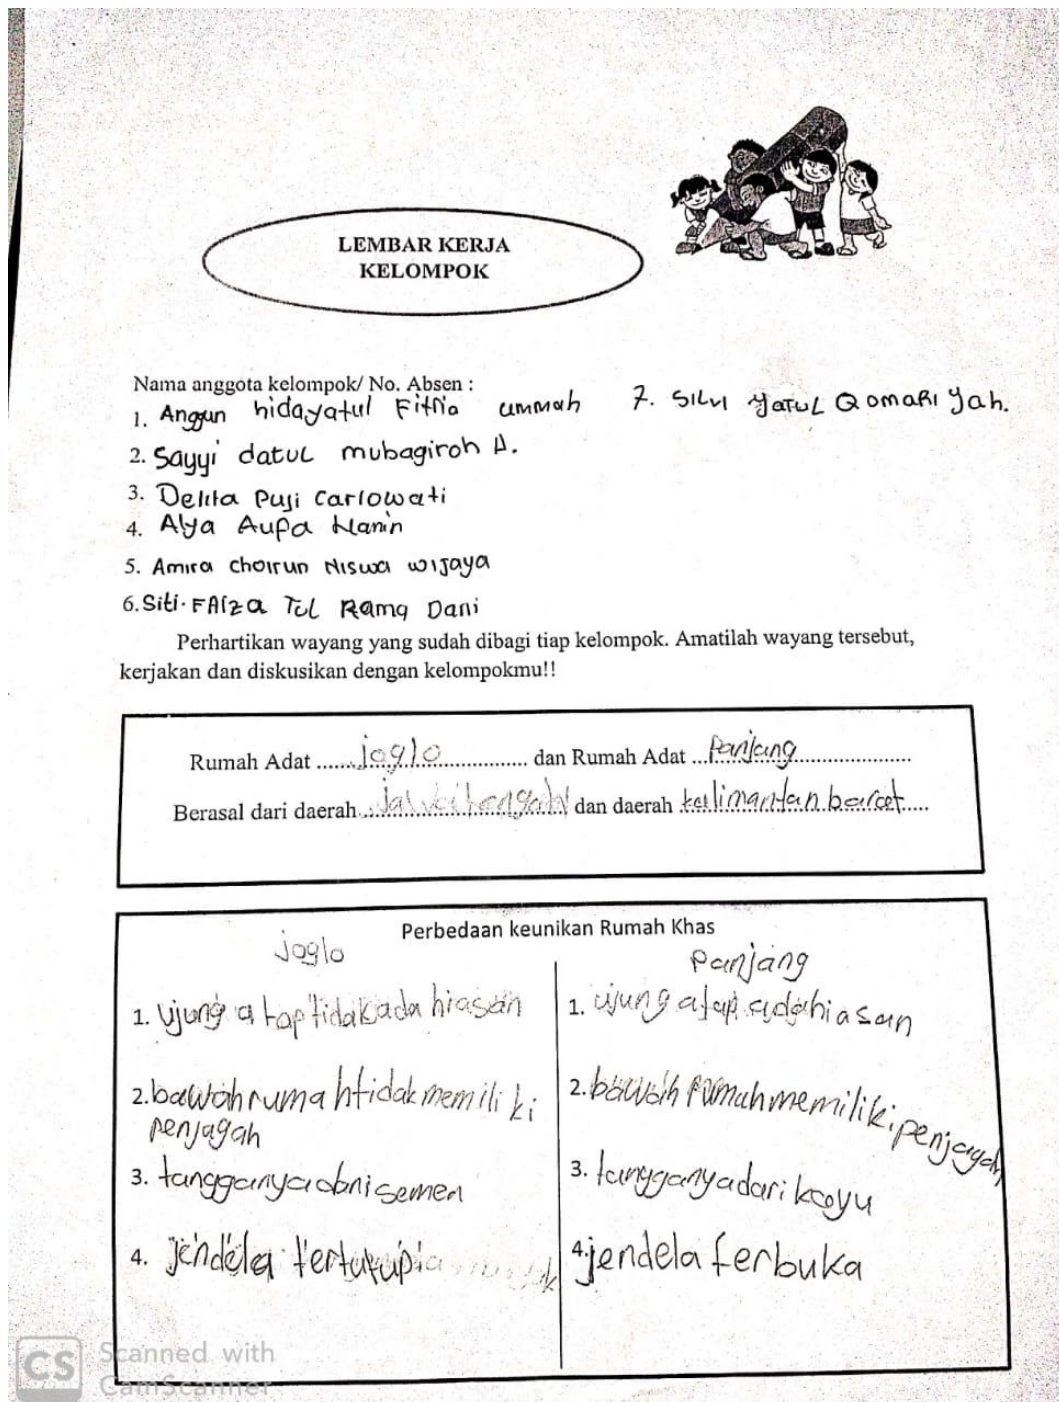 LEMBAR KERJA
KELOMPOK
Nama anggota kelompok/ No. Absen :
1. Anggun hidayatul Fitria ummah
2. Sayyi datul mubagiroh A.
3. Delita Puji Carlowati
4. Alya Aufa Hanin
5. Amira choirun Niswa wijaya
6. Siti. FAiza Tul Rama Dani
7. Silvi yatul Qomari yah.
Perhartikan wayang yang sudah dibagi tiap kelompok. Amatilah wayang tersebut,
kerjakan dan diskusikan dengan kelompokmu!!
Rumah Adat ......joglo...... dan Rumah Adat ...Panjang......
Berasal dari daerah ...jawa tengah... dan daerah kalimantan barat....
Perbedaan keunikan Rumah Khas
joglo
1. Ujung atap tidak ada hiasan
2. bawah rumah tidak memiliki
penjagah
3. tangganya semen
4. jendela tertutup
Panjang
1. ujung atap ada hiasan
2. bawah rumah memiliki penjagah
3. tangganya dari kayu
4. jendela terbuka
CS Scanned with
CamScanner